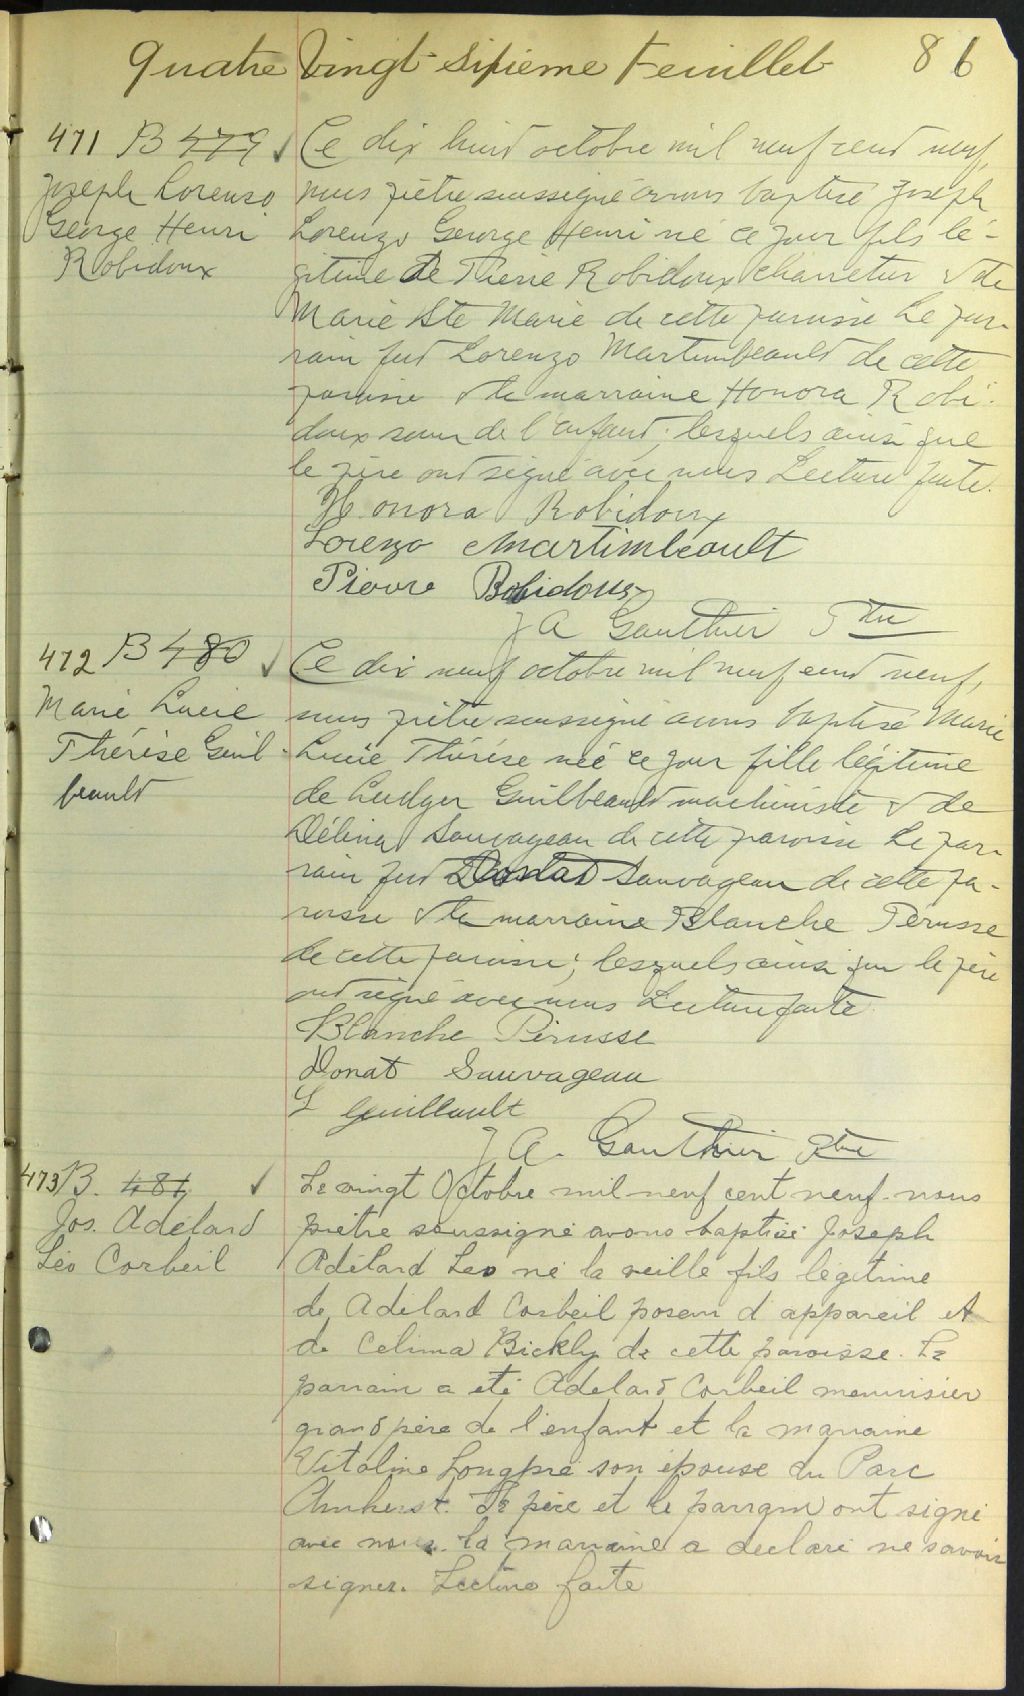 Quatre Vingt Sixieme Feuillet 86
471 B 479
Joseph Lorenzo
George Henri
Robidoux
Ce dix huit octobre mil neuf cent neuf,
nous prêtre soussigné avons baptisé Joseph
Lorenzo George Henri né ce jour fils lé-
gitime de Pierre Robidoux charretier & de
Marie Ste Marie de cette paroisse Le par-
rain fut Lorenzo Martimbeault de cette
paroisse & la marraine Honora Robi-
doux sœur de l'enfant; lesquels ainsi que
le père ont signé avec nous Lecture faite.
Honora Robidoux
Lorenzo Martimbeault
Pierre Robidoux
J A Gauthier Ptre
472 B 480
Marie Lucie
Thérèse Guil-
beault
Ce dix neuf octobre mil neuf cent neuf,
nous prêtre soussigné avons baptisé Marie
Lucie Thérèse née ce jour fille légitime
de Ludger Guilbeault machiniste & de
Délina Sauvageau de cette paroisse Le par-
rain fut Donat Sauvageau de cette pa-
roisse & la marraine Blanche Perusse
de cette paroisse; lesquels ainsi que le père
ont signé avec nous Lecture faite.
Blanche Perusse
Donat Sauvageau
L Guilbault
J A. Gauthier Ptre
473 B. 481
Jos. Adélard
Léo Corbeil
Le vingt Octobre mil neuf cent neuf nous
prêtre soussigné avons baptisé Joseph
Adélard Leo né la veille fils legitime
de Adélard Corbeil poseur d'appareil et
de Celima Bickly de cette paroisse. Le
parrain a eté Adelard Corbeil menuisier
grand père de l'enfant et la marraine
Vitaline Longpré son épouse du Parc
Amherst. Le père et le parrain ont signé
avec nous. La marraine a declaré ne savoir
signer. Lecture faite